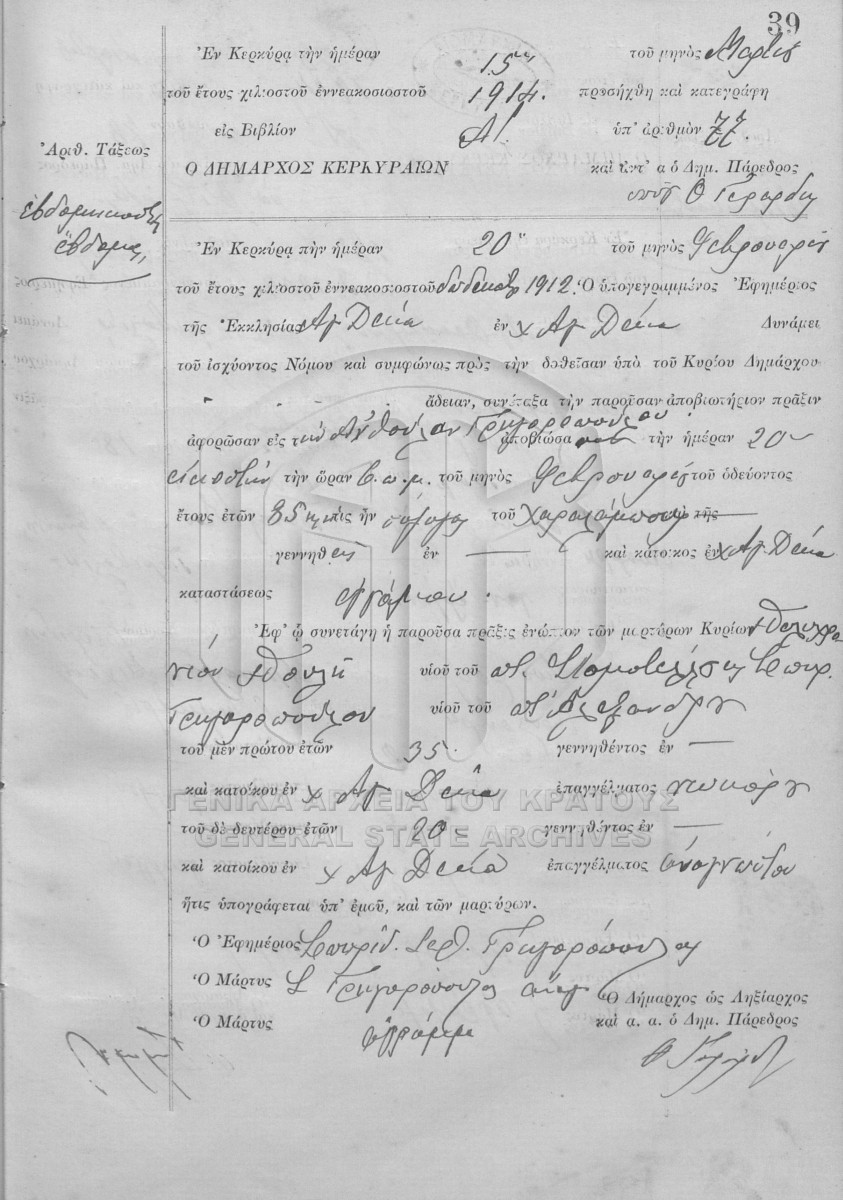 39
Ἐν Κερκύρᾳ τὴν ἡμέραν 15ην τοῦ μηνὸς Μαρτίου
τοῦ ἔτους χιλιοστοῦ ἐννεακοσιοστοῦ 1914. προσήχθη καὶ κατεγράφη
εἰς Βιβλίον Α! ὑπ' ἀριθμὸν 77.
Ἀριθ. Τάξεως
Ο ΔΗΜΑΡΧΟΣ ΚΕΡΚΥΡΑΙΩΝ καὶ ἀντ' α ὁ Δημ. Πάρεδρος
ἑβδομηκοστὴ
ἑβδόμη,
Ἐν Κερκύρᾳ τὴν ἡμέραν 20 τοῦ μηνὸς Φεβρουαρίου
τοῦ ἔτους χιλιοστοῦ ἐννεακοσιοστοῦ δωδεκάτου 1912. Ὁ ὑπογεγραμμένος Ἐφημέριος
τῆς Ἐκκλησίας Ἁγ. Δέκα ἐν χ Ἁγ. Δέκα Δυνάμει
τοῦ ἰσχύοντος Νόμου καὶ συμφώνως πρὸς τὴν δοθεῖσαν ὑπὸ τοῦ Κυρίου Δημάρχου
ἄδειαν, συνέταξα τὴν παροῦσαν ἀποβιωτήριον πρᾶξιν
ἀφορῶσαν εἰς τὴν Ἀνθούλαν Γρηγοροπούλου. ἀποβιώσασαν τὴν ἡμέραν 20
εἰκοστὴν τὴν ὥραν β. π. μ. τοῦ μηνὸς Φεβρουαρίου τοῦ ὁδεύοντος
ἔτους ἐτῶν 85 ἥτις ἦν σύζυγος τοῦ Χαραλάμπους καὶ τῆς —
γεννηθεὶς ἐν — καὶ κάτοικος ἐν χ Ἁγ. Δέκα
καταστάσεως ἐγγάμου.
Ἐφ' ᾧ συνετάγη ἡ παροῦσα πρᾶξις ἐνώπιον τῶν μαρτύρων Κυρίων Πολυχρο
νίου Πουλῆ υἱοῦ τοῦ ποτ. Σταματέλλου καὶ Σπυρ.
Γρηγοροπούλου υἱοῦ τοῦ ποτ. Ἀλεξάνδρου
τοῦ μὲν πρώτου ἐτῶν 35. γεννηθέντος ἐν —
καὶ κατοίκου ἐν χ Ἁγ. Δέκα ἐπαγγέλματος νεωκόρου
ΓΕΝΙΚΑ ΑΡΧΕΙΑ ΤΟΥ ΚΡΑΤΟΥΣ
τοῦ δὲ δευτέρου ἐτῶν 20 γεννηθέντος ἐν —
GENERAL STATE ARCHIVES
καὶ κατοίκου ἐν χ Ἁγ. Δέκα ἐπαγγέλματος ἀναγνώστου
ἥτις ὑπογράφεται ὑπ' ἐμοῦ, καὶ τῶν μαρτύρων.
Ὁ Ἐφημέριος Σπυρίδ. Ἱερ. Γρηγορόπουλος
Ὁ Μάρτυς Σ Γρηγορόπουλος ἀναγ
Ὁ Δήμαρχος ὡς Ληξίαρχος
Ὁ Μάρτυς ἀγράμμ
καὶ α. α. ὁ Δημ. Πάρεδρος